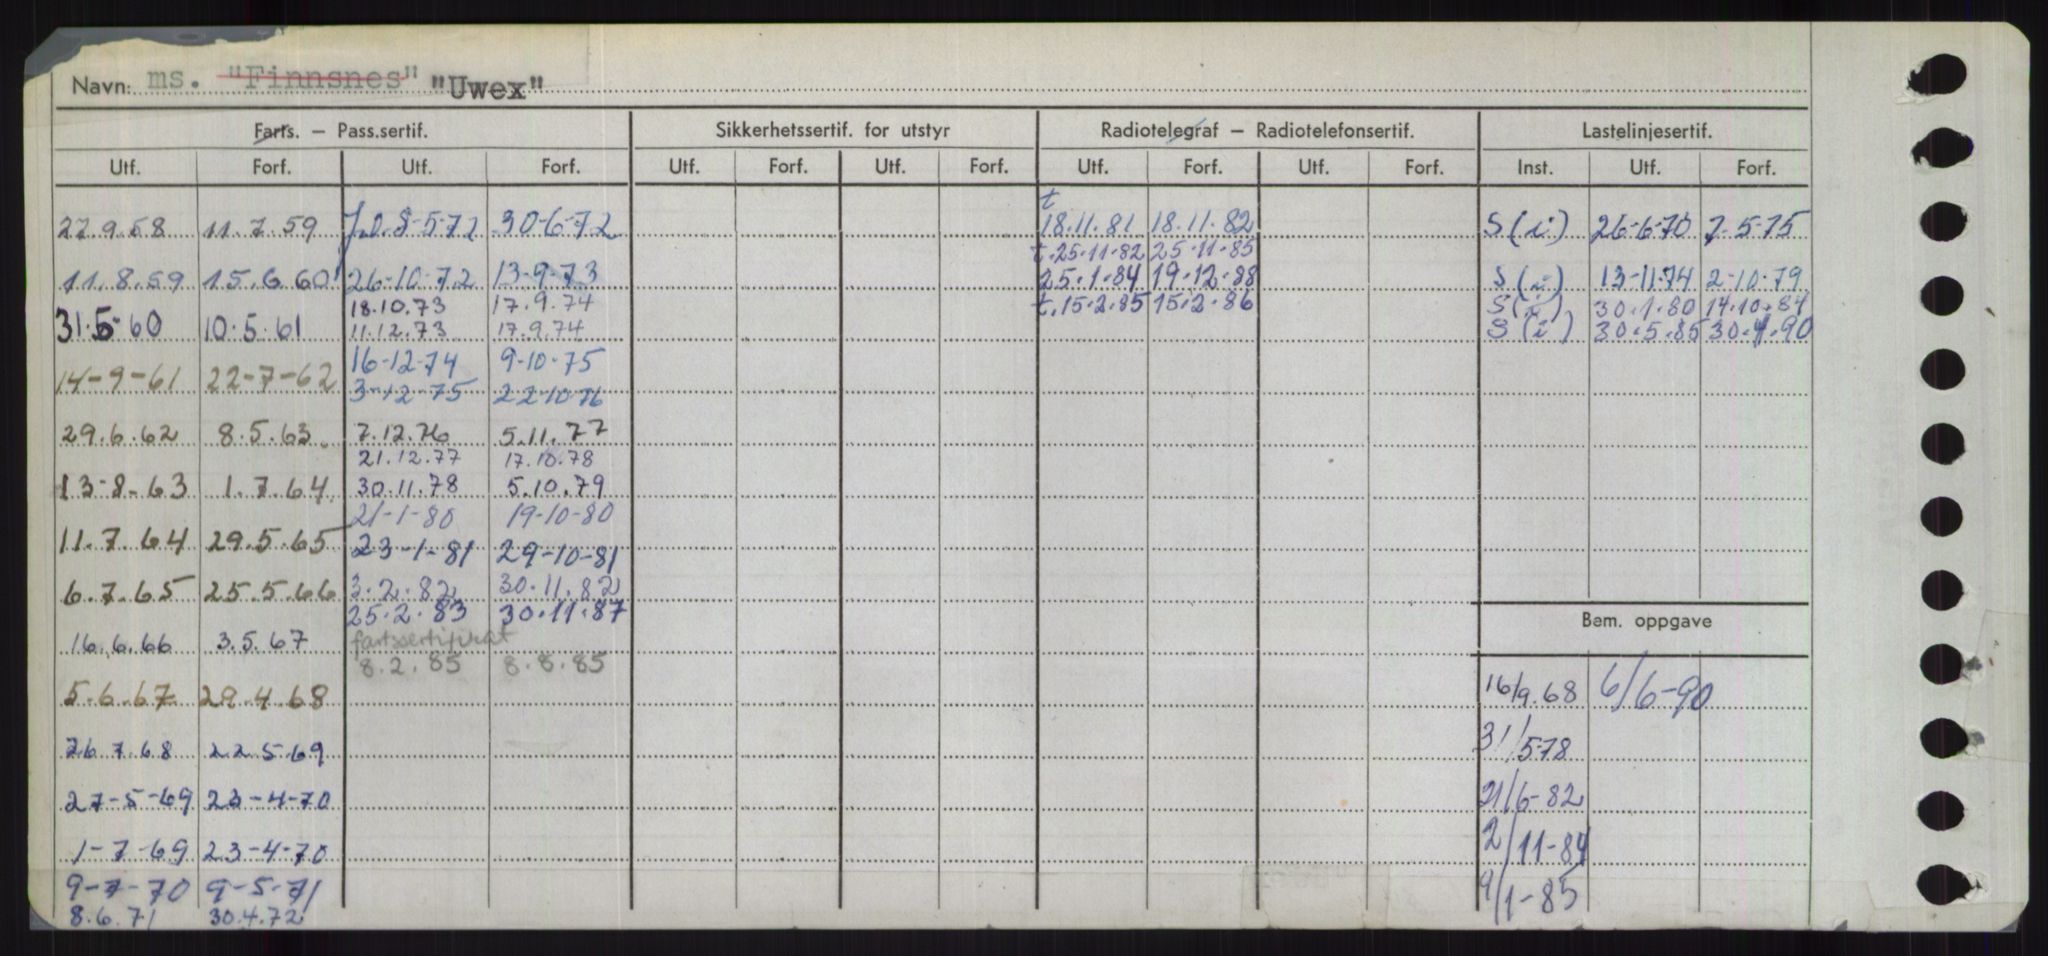 Navn: ms. "Finnsnes" "Uwex"
Farts. – Pass.sertif. Sikkerhetssertif. for utstyr Radiotelegraf – Radiotelefonsertif. Lastelinjesertif.
Utf. Forf. Utf. Forf. Utf. Forf. Utf. Forf. Utf. Forf. Utf. Forf. Inst. Utf. Forf.
t
8-5-72 30-6-72 18.11.81 18.11.82 S (i) 26-6-70 7-5-75
22.9.58 11.7.59
t.25-11-82 25-11-85
11.8.59 15.6.60 26-10-72 13-9-73 25.1.84 19.12.88 S (i) 13-11-74 2-10-79
18.10.73 17.9.74 t.15.2.85 15.2.86 S(i) 30.1.80 14.10.84
31.5-60 10.5.61 11.12.73 17.9.74 S (i) 30.5.85 30.4.90
16-12-74 9-10-75
14-9-61 22-7-62 3-12-75 22-10-76
29.6.62 8.5.63. 7.12.76 5.11.77
21.12.77 17.10.78
13-8-63 1.7.64 30.11.78 5.10.79
21-1-80 19-10-80
11.7.64 29.5.65 23-1-81 29-10-81
6.7.65 25.5.66 3.2.82 30.11.82
25.2.83 30.11.87
Bem. oppgave
16.6.66 3.5.67 fartssertifikat
8.2.85 8.8.85
5.6.67 29.4.68 16/9.68 6/6-90
26.7.68 22.5.69 31/578
27-5-69 23-4-70 21/6-82
1-7-69 23-4-70 2/11-84
9-7-70 9-5-71 9/1-85
8.6.71 30.4.72